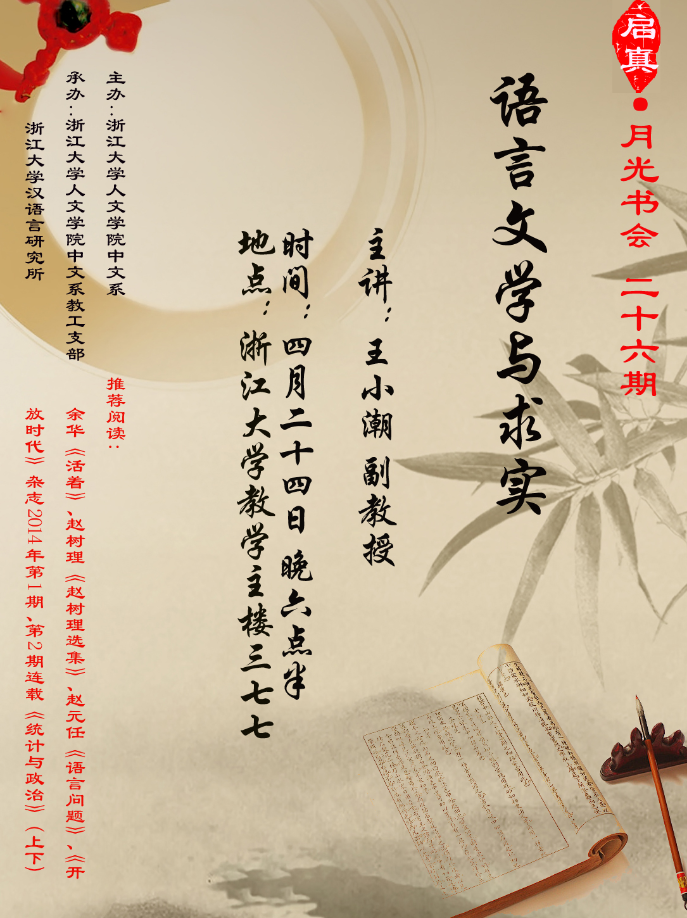 启真·月光书会 二十六期
语言文学与求实
主讲：王小潮 副教授
时间：四月二十四日 晚六点半
地点：浙江大学教学主楼三七七
主办：浙江大学人文学院中文系
承办：浙江大学人文学院中文系教工支部
浙江大学汉语言研究所
推荐阅读：
余华《活着》、赵树理《赵树理选集》、赵元任《语言问题》、《开
放时代》杂志2014年第1期、第2期连载《统计与政治》（上下）